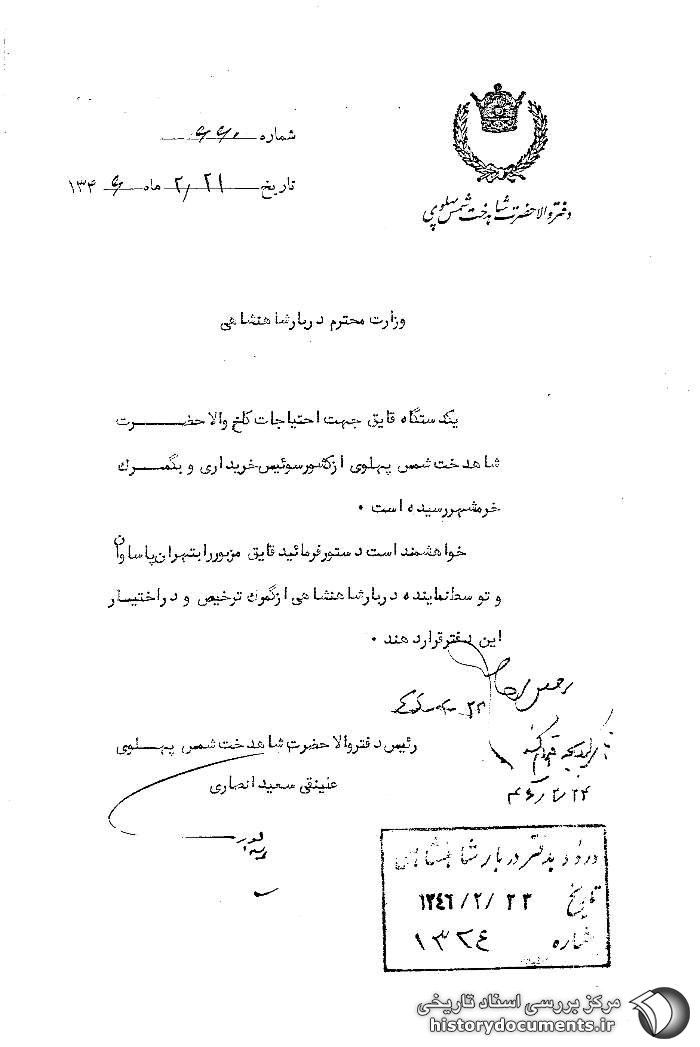 دفتر والاحضرت شاهدخت شمس پهلوی
شماره ۶۶۰
تاریخ ۲/۲۱ ماه ۱۳۴۶
وزارت محترم دربار شاهنشاهی
یکدستگاه قایق جهت احتیاجات کاخ والاحضرت
شاهدخت شمس پهلوی از کشور سوئیس خریداری و بگمرک
خرمشهر رسیده است .
خواهشمند است دستور فرمائید قایق مزبور را بتهران پاساوان
و توسط نماینده دربار شاهنشاهی از گمرک ترخیص و در اختیار
این دفتر قرار دهند .
رئیس دفتر والاحضرت شاهدخت شمس پهلوی
علینقی سعید انصاری
۴۶/۲/۲۴
ورود بدفتر دربار شاهنشاهی
تاریخ ۱۳۴۶/۲/۲۳
شماره ۱۳۲۴
مرکز بررسی اسناد تاریخی
historydocuments.ir